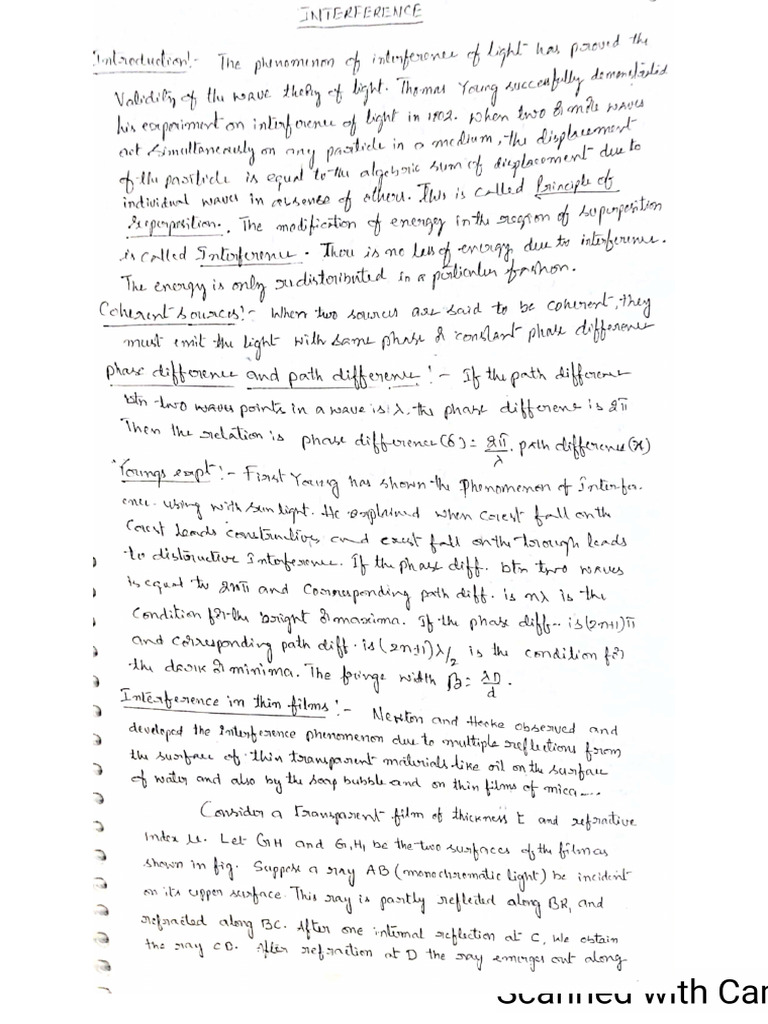 INTERFERENCE
Introduction:- The phenomenon of interference of light has proved the
Validity of the wave theory of light. Thomas Young successfully demonstrated
his experiment on interference of light in 1802. When two or more waves
act simultaneously on any particle in a medium, the displacement
of the particle is equal to the algebric sum of displacement due to
individual waves in absense of others. This is called Principle of
Superposition. The modification of energy in the region of superposition
is called Interference. There is no loss of energy due to interference.
The energy is only redistributed in a perticular fashon.
Coherent sources:- When two sources are said to be coherent, they
must emit the light with same phase or constant phase difference
phase difference and path difference:- If the path difference
btn two waves points in a wave is λ, the phase difference is 2π
Then the relation is phase difference (δ) = 2π/λ . path difference (x)
Youngs expt:- First Young has shown the Phenomenon of Interfer-
ence. using with sun light. He explained when crest fall on the
Crest leads constructives and crest fall on the through leads
to distructive Interference. If the phase diff. btn two waves
is equal to 2nπ and Corresponding path diff. is nλ is the
Condition for the bright or maxima. If the phase diff.. is (2n+1)π
and corresponding path diff. is (2n+1)λ/2 is the condition for
the dark or minima. The fringe width β = λD/d .
Interference in thin films:- Newton and Hooke observed and
developed the interference phenomenon due to multiple reflections from
the surface of thin transparent materials like oil on the surface
of water and also by the soap bubble and on thin films of mica....
Consider a Transparent film of thickness t and refractive
index μ. Let GH and G₁H₁ be the two surfaces of the film as
shown in fig. Suppose a ray AB (monochromatic light) be incident
on its upper surface. This ray is partly reflected along BR₁ and
refracted along BC. After one internal reflection at C, We obtain
the ray CD. After refraction at D the ray emerges out along
Scanned with Car